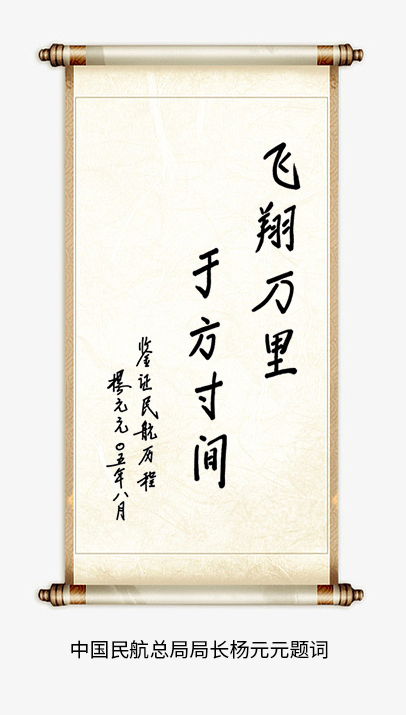 飞翔万里
于方寸间
鉴证民航历程
杨元元 〇五年八月
中国民航总局局长杨元元题词